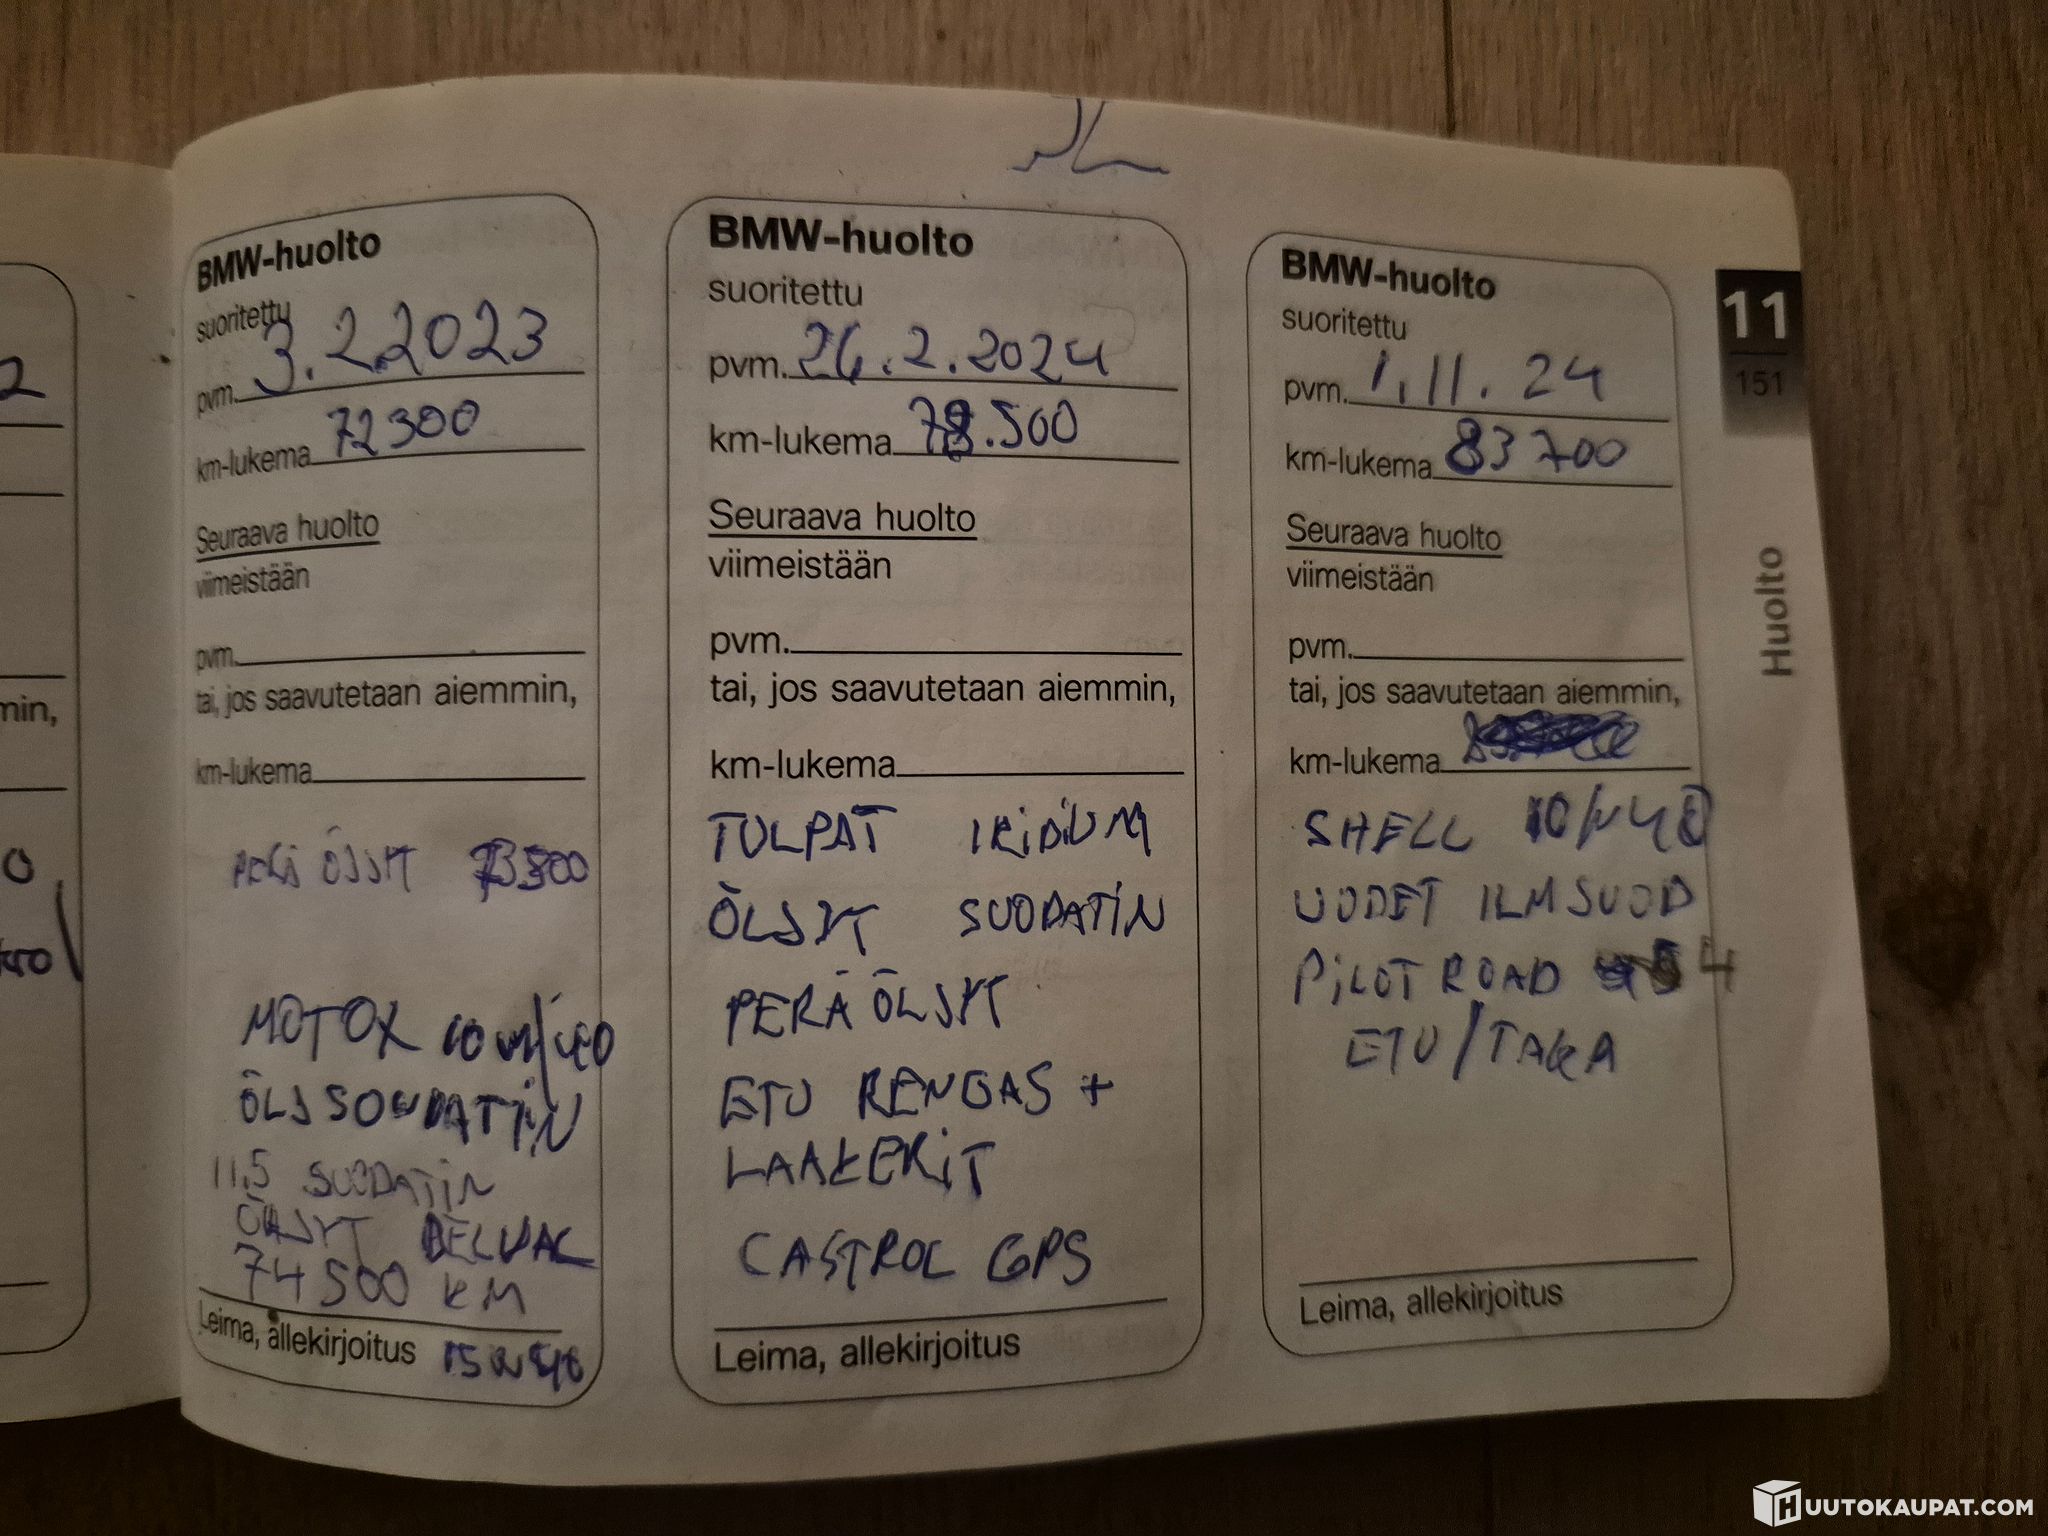 BMW-huolto
suoritettu
pvm. 3.2.2023
km-lukema 72300
Seuraava huolto
viimeistään
pvm.
tai, jos saavutetaan aiemmin,
km-lukema
PERÄ ÖLJYT
MOTOX 10W/40
11.5 SUODATIN
ÖLJYT
74500 KM
Leima, allekirjoitus
BMW-huolto
suoritettu
pvm. 26.2.2024
km-lukema 78.500
Seuraava huolto
viimeistään
pvm.
tai, jos saavutetaan aiemmin,
km-lukema
TULPAT IRIDIUM
ÖLJYT SUODATIN
PERÄ ÖLJYT
ETU RENGAS +
LAAKERIT
CASTROL GPS
Leima, allekirjoitus
BMW-huolto
suoritettu
pvm. 1.11.24
km-lukema 83700
Seuraava huolto
viimeistään
pvm.
tai, jos saavutetaan aiemmin,
km-lukema
SHELL 10/W40
UUDET ILMSUOD
PILOT ROAD 4
ETU/TAKA
Leima, allekirjoitus
11
151
Huolto
min,
HUUTOKAUPAT.COM